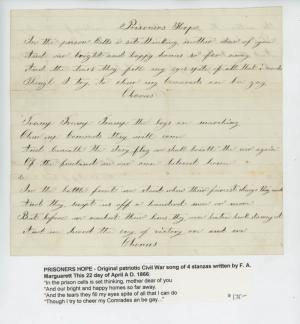 Prisoners Hope
In the prison Cells is set thinking, mother dear of you
And our bright and happy homes so far away
And the tears they fill my eyes spite of all that I can do
Though I try to chear my comrads an be gay
Chorus
Tramp Tramp Tramp the boys are marching
Chear up Comrads they will come
And beneath the starry flag we shall breath the air again
Of the freeland in our own beloved home
In the battle front we stood when their fiercest charge they made
And they swept us off a hundred men or more
But before we reached their lines they were beaten back dismayed
And we heard the cry of victory or and or
Chorus
PRISONERS HOPE - Original patriotic Civil War song of 4 stanzas written by F. A.
Marguarett This 22 day of April A D. 1866.
"In the prison cells is set thinking, mother dear of you
"And our bright and happy homes so far away,
"And the tears they fill my eyes spite of all that I can do
"Though I try to cheer my Comrades an be gay."